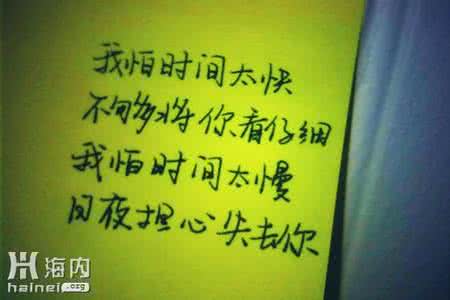 我怕时间太快
不够将你看仔细
我怕时间太慢
日夜担心失去你
海内
hainei.org